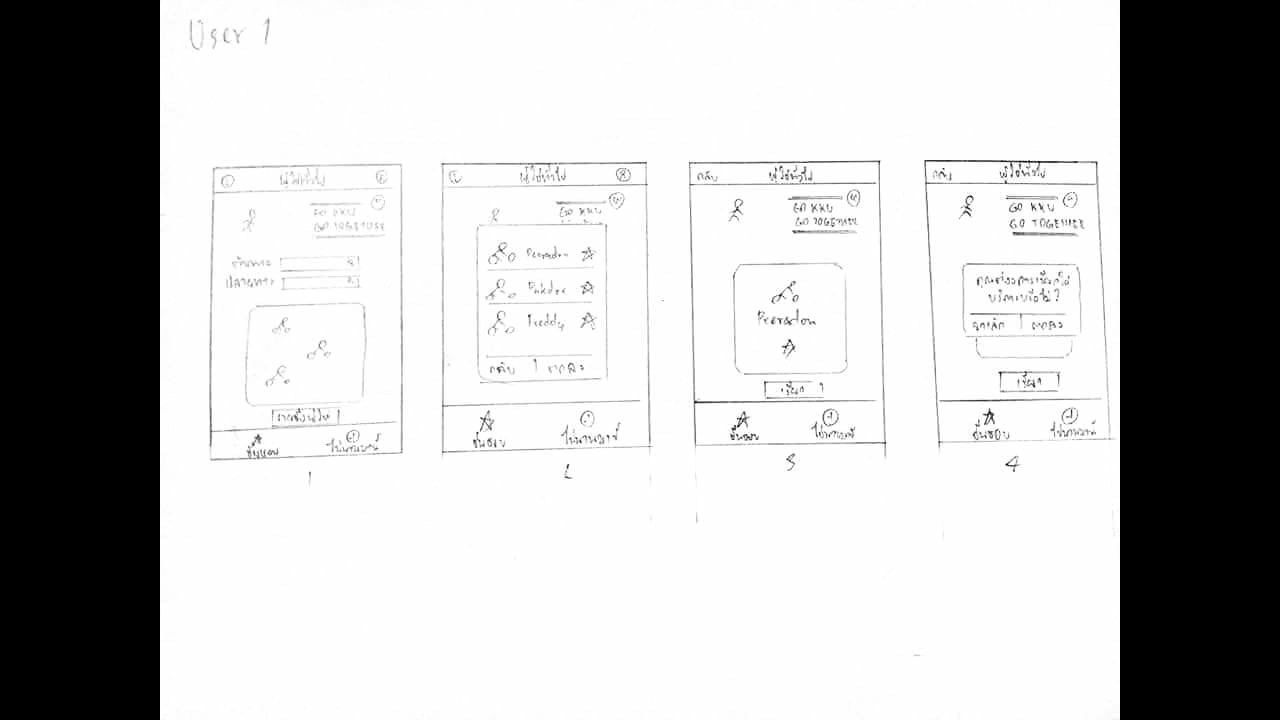 User 1
ผู้ใช้ทั่วไป
GO KKU
GO TOGETHER
ต้นทาง
ปลายทาง
ชื่นชอบ
1
ผู้ใช้ทั่วไป
GO KKU
Peeradon
Freddy
กลับ | ตกลง
ชื่นชอบ
2
กลับ ผู้ใช้ทั่วไป
GO KKU
GO TOGETHER
Peeradon
เรียก
ชื่นชอบ
3
กลับ ผู้ใช้ทั่วไป
GO KKU
GO TOGETHER
คุณต้องการเรียกใช้
บริการหรือไม่ ?
ยกเลิก | ตกลง
เรียก
ชื่นชอบ
4